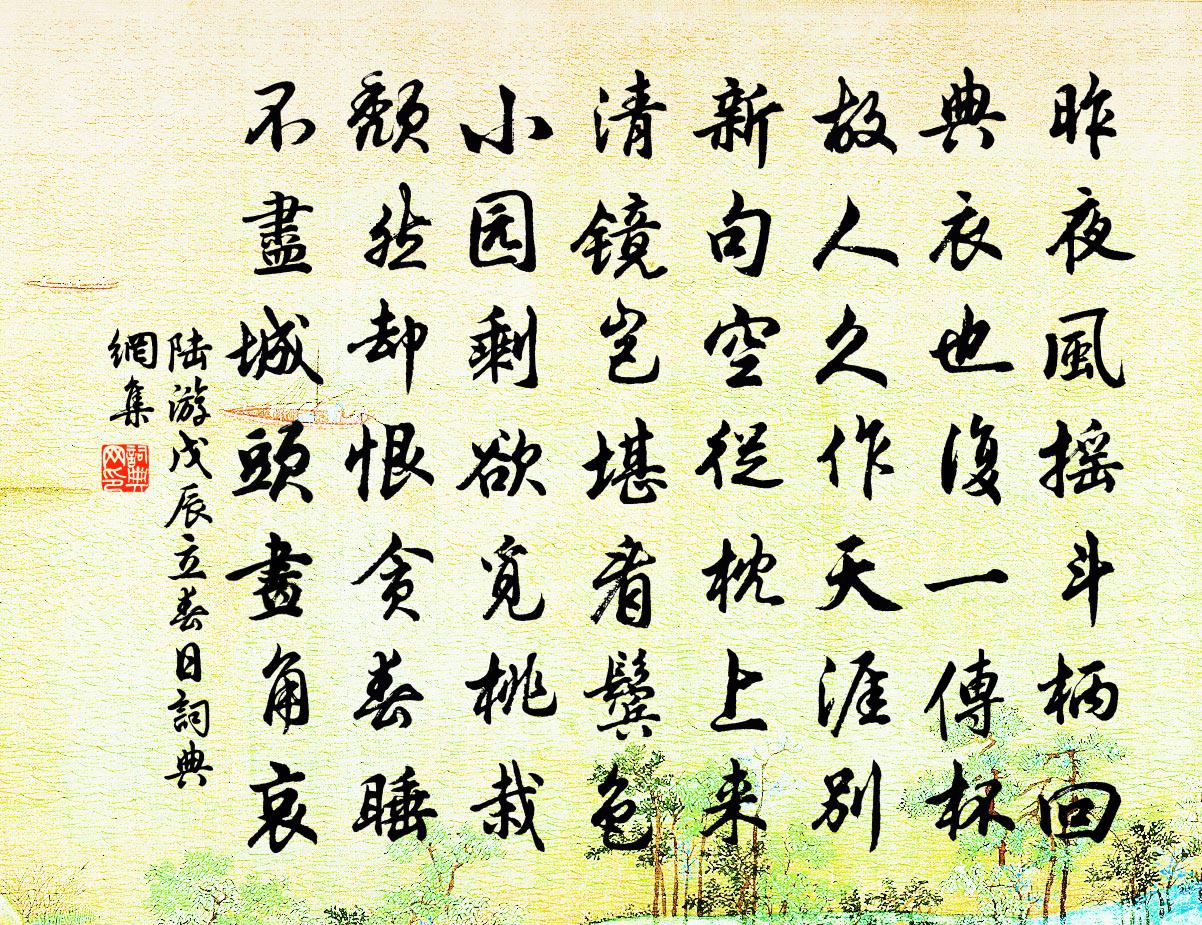 昨夜風摇斗柄回
典衣也復一傳杯
故人久作天涯別
新句空從枕上来
清镜岂堪看鬓色
小园剩欲覓桃栽
頹然却恨贪春睡
不盡城頭畫角哀
陆游戊辰立春日詞典
網集
詞典
网印